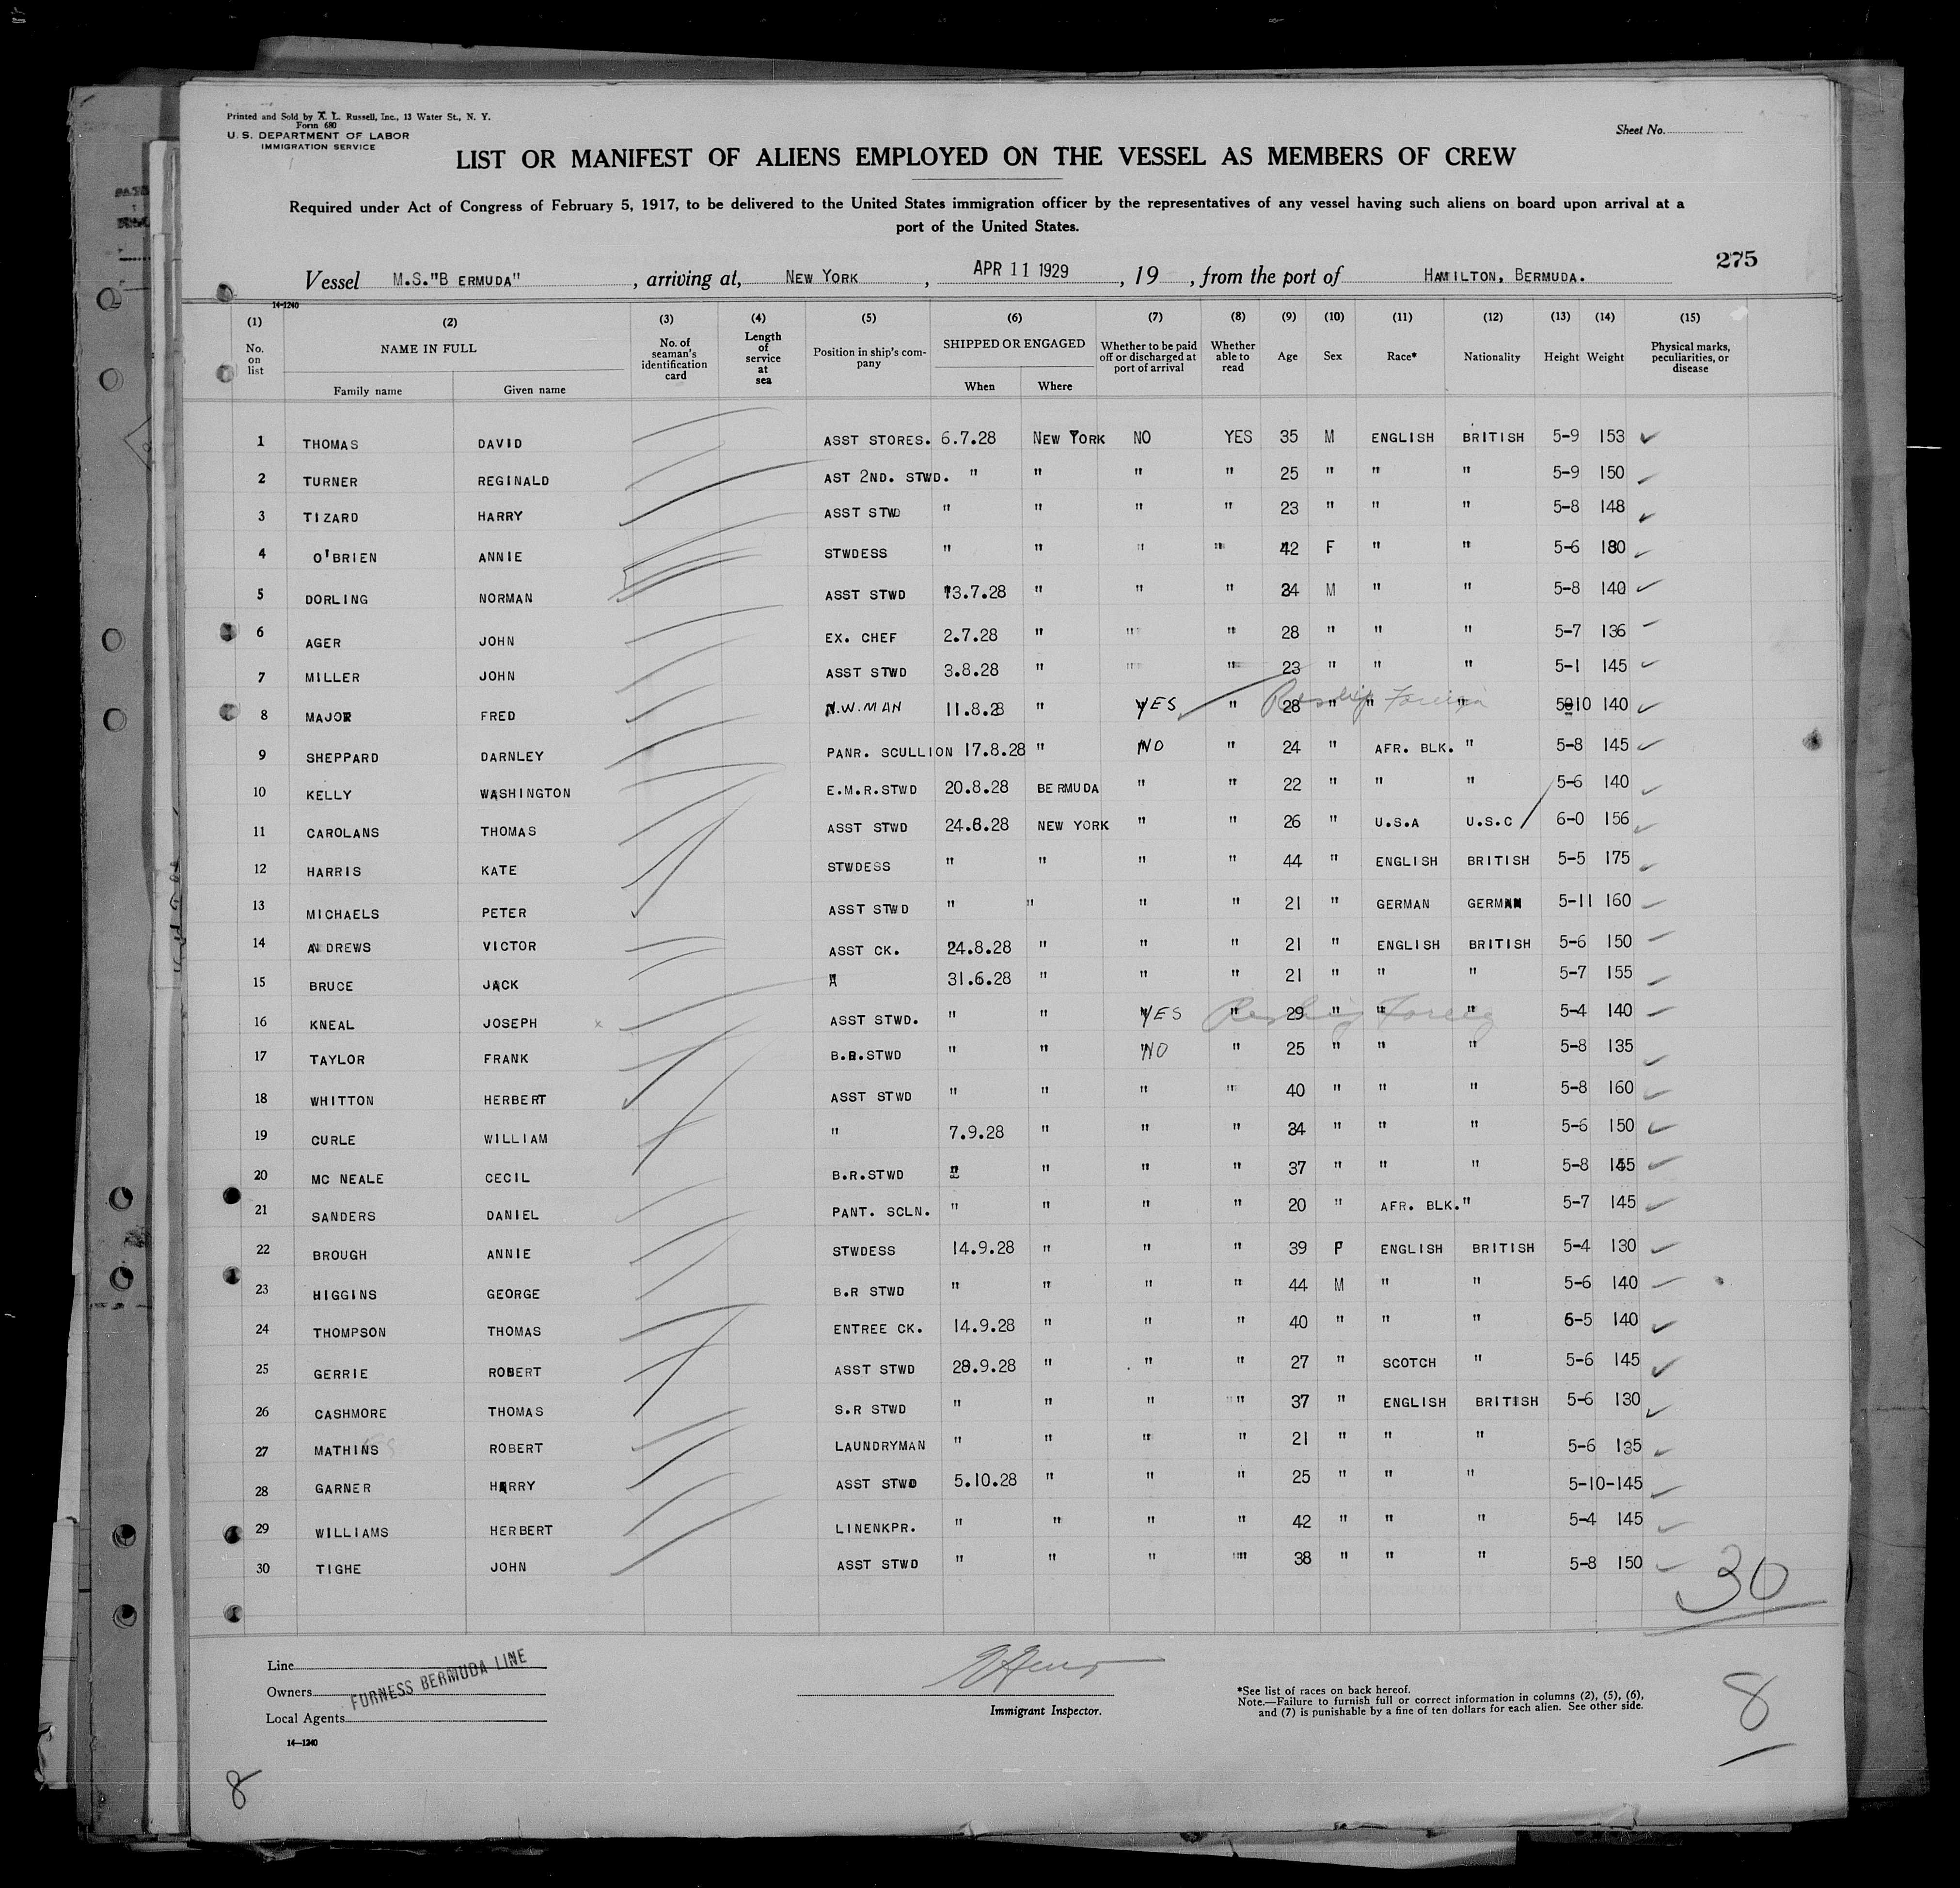 Printed and Sold by A. L. Russell, Inc., 13 Water St., N. Y.
Form 680
U. S. DEPARTMENT OF LABOR
IMMIGRATION SERVICE
Sheet No.
LIST OR MANIFEST OF ALIENS EMPLOYED ON THE VESSEL AS MEMBERS OF CREW
Required under Act of Congress of February 5, 1917, to be delivered to the United States immigration officer by the representatives of any vessel having such aliens on board upon arrival at a
port of the United States.
275
Vessel M.S."B ERMUDA", arriving at, NEW YORK, APR 11 1929, 19 , from the port of HAMILTON, BERMUDA.
14-1240
(1) (2) (3) (4) (5) (6) (7) (8) (9) (10) (11) (12) (13) (14) (15)
No. on list NAME IN FULL Family name Given name No. of seaman's identification card Length of service at sea Position in ship's company SHIPPED OR ENGAGED When Where Whether to be paid off or discharged at port of arrival Whether able to read Age Sex Race* Nationality Height Weight Physical marks, peculiarities, or disease
1 THOMAS DAVID ASST STORES. 6.7.28 NEW YORK NO YES 35 M ENGLISH BRITISH 5-9 153
2 TURNER REGINALD AST 2ND. STWD. " " " " 25 " " " 5-9 150
3 TIZARD HARRY ASST STWD " " " " 23 " " " 5-8 148
4 O'BRIEN ANNIE STWDESS " " " " 42 F " " 5-6 180
5 DORLING NORMAN ASST STWD 13.7.28 " " " 24 M " " 5-8 140
6 AGER JOHN EX. CHEF 2.7.28 " " " 28 " " " 5-7 136
7 MILLER JOHN ASST STWD 3.8.28 " " " 23 " " " 5-1 145
8 MAJOR FRED N.W.MAN 11.8.28 " YES " 28 " " " 5-10 140 Reship Foreign
9 SHEPPARD DARNLEY PANR. SCULLION 17.8.28 " NO " 24 " AFR. BLK. " 5-8 145
10 KELLY WASHINGTON E.M.R.STWD 20.8.28 BERMUDA " " 22 " " " 5-6 140
11 CAROLANS THOMAS ASST STWD 24.8.28 NEW YORK " " 26 " U.S.A U.S.C 6-0 156
12 HARRIS KATE STWDESS " " " " 44 " ENGLISH BRITISH 5-5 175
13 MICHAELS PETER ASST STWD " " " " 21 " GERMAN GERMAN 5-11 160
14 ANDREWS VICTOR ASST CK. 24.8.28 " " " 21 " ENGLISH BRITISH 5-6 150
15 BRUCE JACK " 31.6.28 " " " 21 " " " 5-7 155
16 KNEAL JOSEPH x ASST STWD. " " YES " 29 " " " 5-4 140 Reship Foreig
17 TAYLOR FRANK B.R.STWD " " NO " 25 " " " 5-8 135
18 WHITTON HERBERT ASST STWD " " " " 40 " " " 5-8 160
19 CURLE WILLIAM " 7.9.28 " " " 34 " " " 5-6 150
20 MC NEALE CECIL B.R.STWD " " " " 37 " " " 5-8 145
21 SANDERS DANIEL PANT. SCLN. " " " " 20 " AFR. BLK. " 5-7 145
22 BROUGH ANNIE STWDESS 14.9.28 " " " 39 F ENGLISH BRITISH 5-4 130
23 HIGGINS GEORGE B.R STWD " " " " 44 M " " 5-6 140
24 THOMPSON THOMAS ENTREE CK. 14.9.28 " " " 40 " " " 5-5 140
25 GERRIE ROBERT ASST STWD 28.9.28 " " " 27 " SCOTCH " 5-6 145
26 CASHMORE THOMAS S.R STWD " " " " 37 " ENGLISH BRITISH 5-6 130
27 MATHINS ROBERT LAUNDRYMAN " " " " 21 " " " 5-6 135
28 GARNER HARRY ASST STWD 5.10.28 " " " 25 " " " 5-10-145
29 WILLIAMS HERBERT LINENKPR. " " " " 42 " " " 5-4 145
30 TIGHE JOHN ASST STWD " " " " 38 " " " 5-8 150
30
Line
Owners
Local Agents
FURNESS BERMUDA LINE
14—1240
Immigrant Inspector.
*See list of races on back hereof.
Note.—Failure to furnish full or correct information in columns (2), (5), (6),
and (7) is punishable by a fine of ten dollars for each alien. See other side.
8
8